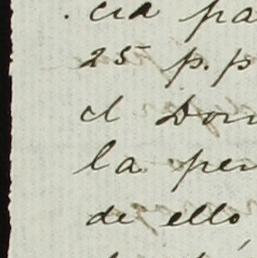 cia pa
25 p.p
el Don
la per
de ello